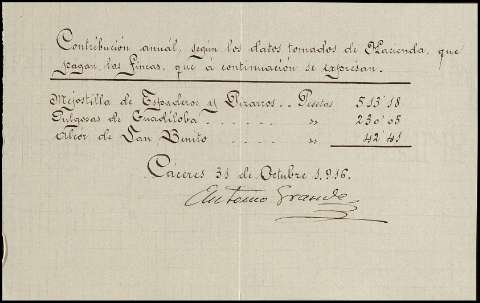 Contribución anual, según los datos tomados de Hacienda, que
pagan las fincas, que á continuación se expresan.
Mejostilla de Espaderos y Pizarros . . Pesetas 513'18
Pulgosas de Guadiloba . . . . . . „ 230'05
Alcor de San Benito . . . . „ 42'41
Cáceres 31 de Octubre 1.916.
Antonio Grande